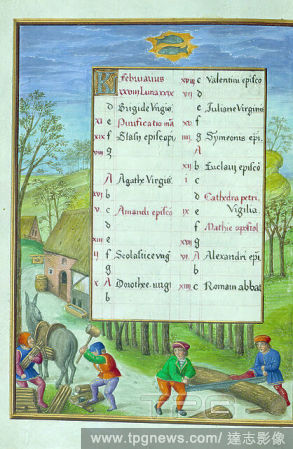 Februarius
xxviii Luna xxix
d Brigide virgis
xi e Purificatio ma
xix f Blasii episcopi
viii g
A Agathe Virgis
xvi b
v c Amandi episco
d
xiii e
ij f Scolastice virg
g
x A Dorothee virgi
b
xviii c Valentini episco
vii d
e Iuliane Virginis
xv f
iiii g Symeonis epi
A
xii b Eucharii episco
i c
d Cathedra petri
ix e Vigilia
f Mathie apostol
xvii g
vi A Alexandri epi
b
xiiii c Romani abbat
www.tpgnews.com / 達志影像